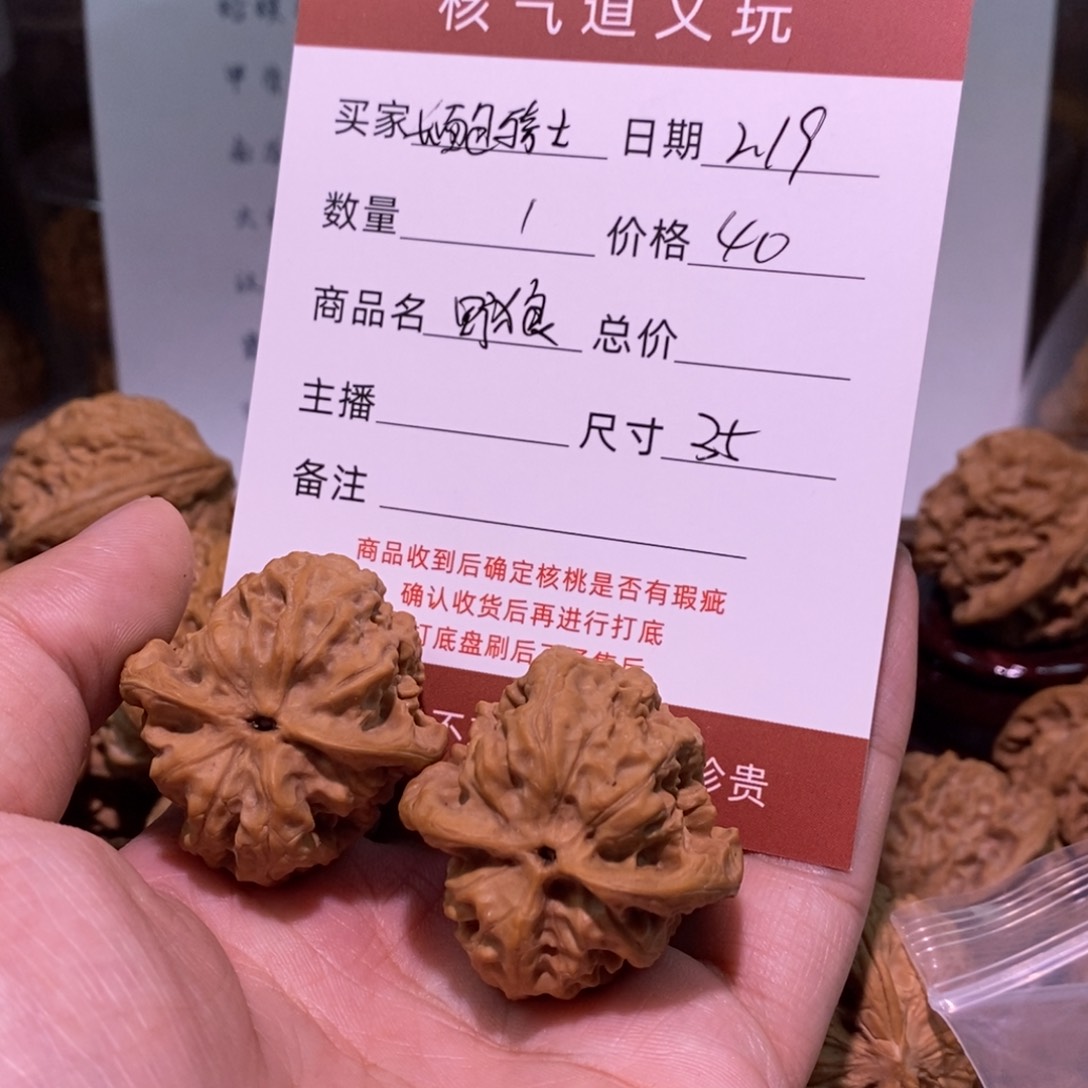 核气道文玩
买家 面包骑士 日期 2.19
数量 1 价格 40
商品名 野狼 总价
主播 尺寸 35
备注
商品收到后确定核桃是否有瑕疵
确认收货后再进行打底
打底盘刷后不予售后
珍贵